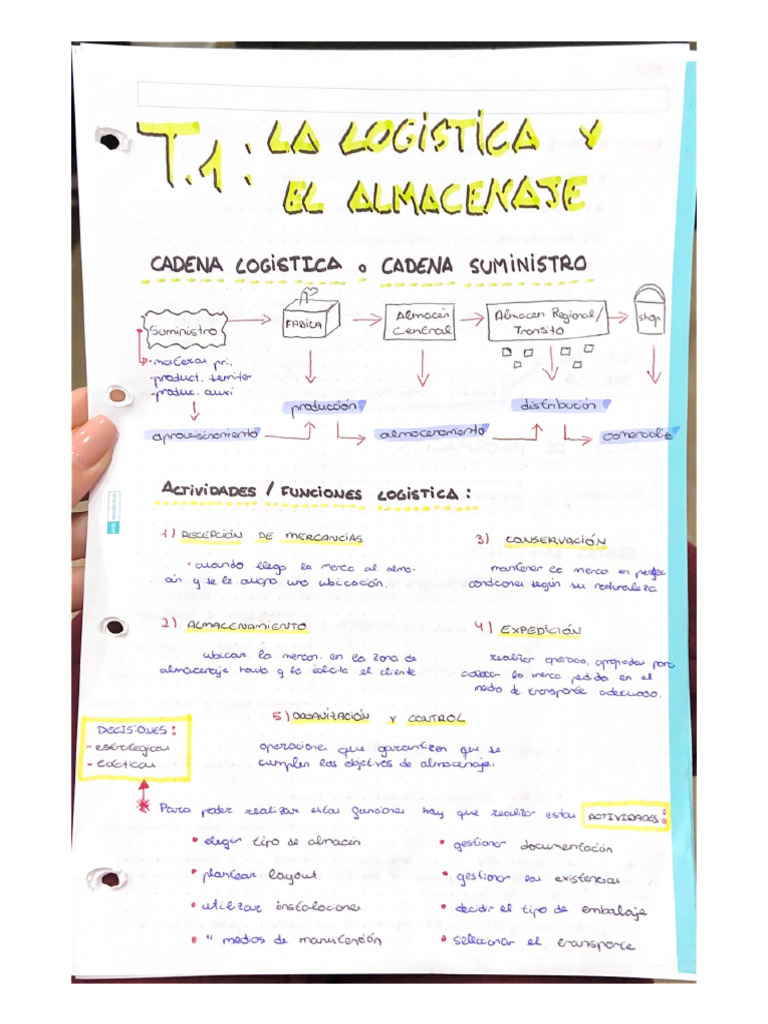 T.1: LA LOGÍSTICA Y
EL ALMACENAJE
CADENA LOGÍSTICA o CADENA SUMINISTRO
Suministro
FABICA
Almacén
Central
Almacen Regional/
Transito
shop
- materas pri.
- product. semiter
- produc. auxi
producción
distribución
aprovisionamiento
almacenamiento
comercializ
ACTIVIDADES / FUNCIONES LOGÍSTICA:
1) RECEPCIÓN DE MERCANCIAS
· cuando llega la merca al alma-
cén y se le asigna una ubicación.
3) CONSERVACIÓN
mantener la merca en perfec
condiciones según su naturaleza
2) ALMACENAMIENTO
ubicar la mercan. en la zona de
almacenaje hasta q la solicite el cliente
4) EXPEDICIÓN
realizar operacio. apropiadas para
colocar la merca pedida en el
medio de transporte adecuado.
5) ORGANIZACIÓN Y CONTROL
operaciones que garantizen que se
cumplen los objetivos de almacenaje.
DECISIONES:
- estrategicas
- tácticas
* Para poder realizar estas funciones hay que realizar estas ACTIVIDADES:
• elegir tipo de almacén
• plantear layout
• utilizar instalaciones
• " medios de manutención
• gestionar documentación
• gestionar las existencias
• decidir el tipo de embalaje
• seleccionar el transporte